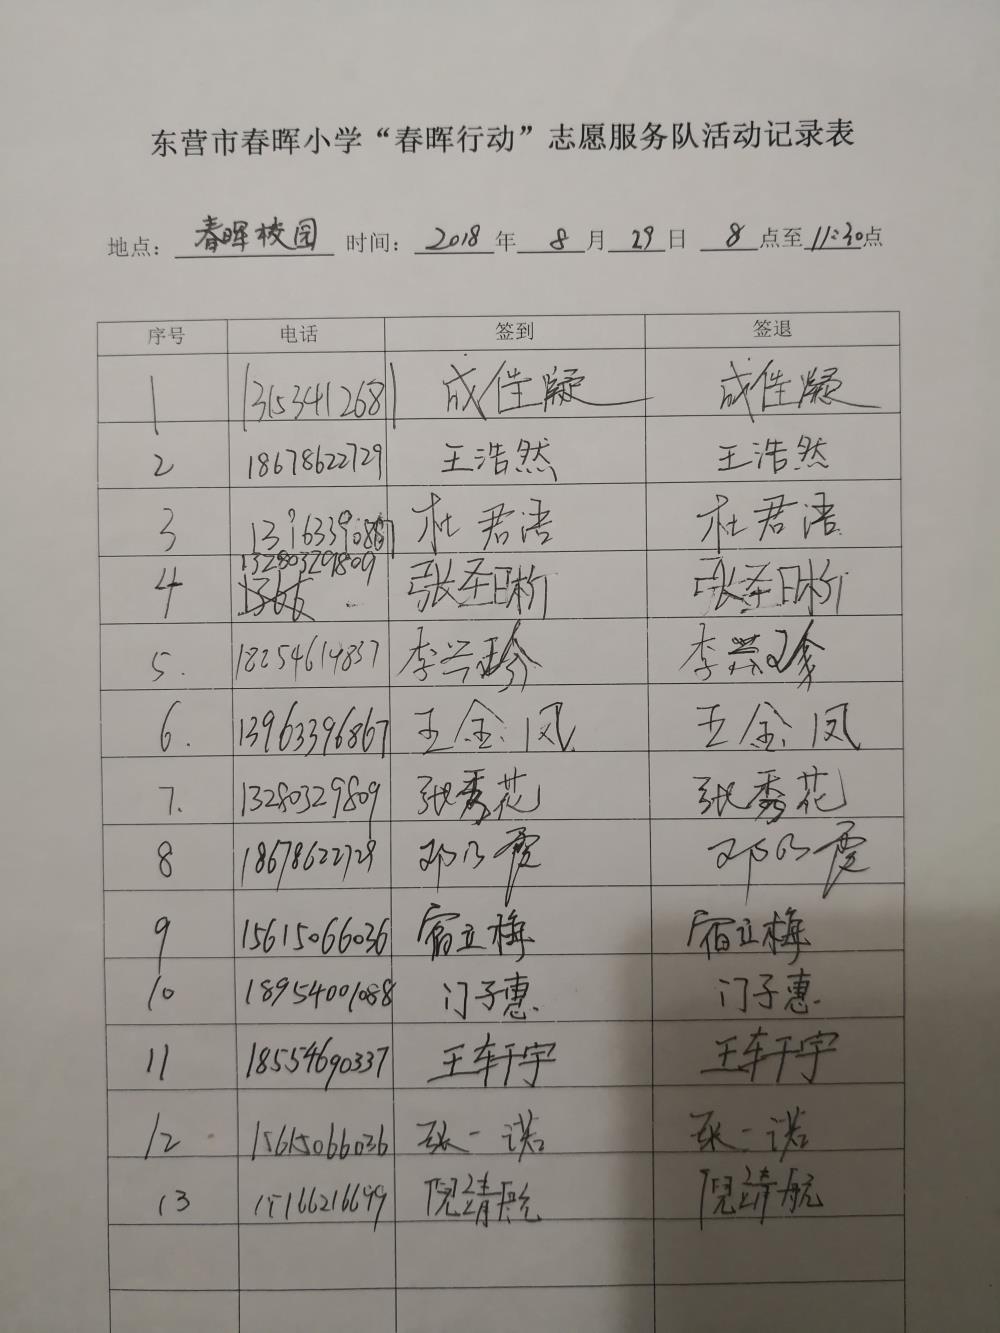 东营市春晖小学“春晖行动”志愿服务队活动记录表
地点： 春晖校园 时间： 2018 年 8 月 29 日 8 点至 11:30 点
序号 电话 签到 签退
1 13153412681 成佳凝 成佳凝
2 18678622729 王浩然 王浩然
3 杜君浯 杜君浯
4 13280329809 张圣 张圣
5. 18254614837 李兴珍 李兴珍
6. 13963396867 王金凤 王金凤
7. 13280329809 张秀花 张秀花
8 18678622729 邓乃霞 邓乃霞
9 15615066036 宿立梅 宿立梅
10 18954001088 门子惠 门子惠
11 18554690337 王轩宇 王轩宇
12 15615066036 张一诺 张一诺
13 15166216649 倪靖航 倪靖航